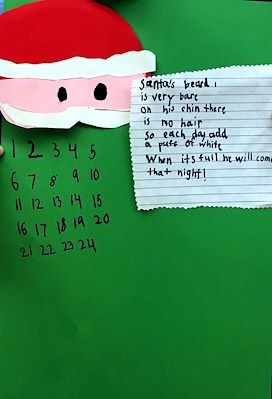 Santa's beard
is very bare
on his chin there
is no hair
so each day add
a puff of white
When its full he will come
that night!
1 2 3 4 5
6 7 8 9 10
11 12 13 14 15
16 17 18 19 20
21 22 23 24